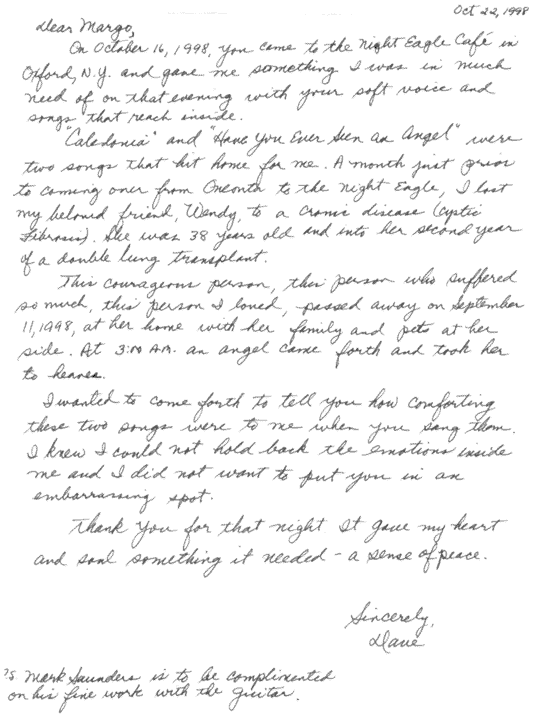 Oct 22, 1998
Dear Margo,
On October 16, 1998, you came to the Night Eagle Café in
Oxford, N.Y. and gave me something I was in much
need of on that evening with your soft voice and
songs that reach inside.
"Caledonia" and "Have You Ever Seen an Angel" were
two songs that hit home for me. A month just prior
to coming over from Oneonta to the Night Eagle, I lost
my beloved friend, Wendy, to a cronic disease (Cystic
Fibrosis). She was 38 years old and into her second year
of a double lung transplant.
This courageous person, this person who suffered
so much, this person I loved, passed away on September
11, 1998, at her home with her family and pets at her
side. At 3:00 AM. an angel came forth and took her
to heaven.
I wanted to come forth to tell you how comforting
these two songs were to me when you sang them.
I knew I could not hold back the emotions inside
me and I did not want to put you in an
embarrassing spot.
Thank you for that night It gave my heart
and soul something it needed - a sense of peace.
Sincerely,
Dave
P.S. Mark Saunders is to be complimented
on his fine work with the guitar.